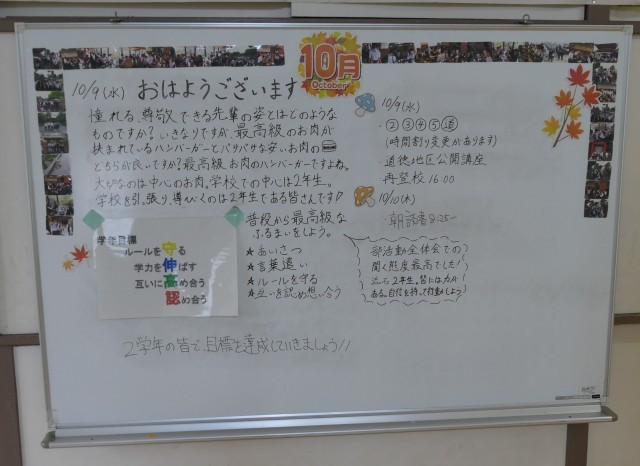 10月
October
10/9(水) おはようございます
憧れる、尊敬できる先輩の姿とはどのような
ものですか？いきなりですが、最高級のお肉が
挟まれているハンバーガーとパサパサな安いお肉の
どちらが良いですか？最高級お肉のハンバーガーですよね。
大切なのは中心のお肉。学校での中心は2年生。
学校を引っ張り、導びくのは2年生である皆さんです
普段から最高級な
ふるまいをしよう。
★あいさつ
★言葉遣い
★ルールを守る
★互いを認め想い合う
学年目標
ルールを守る
学力を伸ばす
互いに高め合う
認め合う
2学年の皆で、目標を達成していきましょう!!
10/9(水)
・②③④⑤道
(時間割り変更があります)
道徳地区公開講座
再登校 16:00
10/10(木)
・朝読書8:25~
部活動全体会での
聞く態度最高でした!
2年生。皆には力が
ある。自信を持って行動しよう